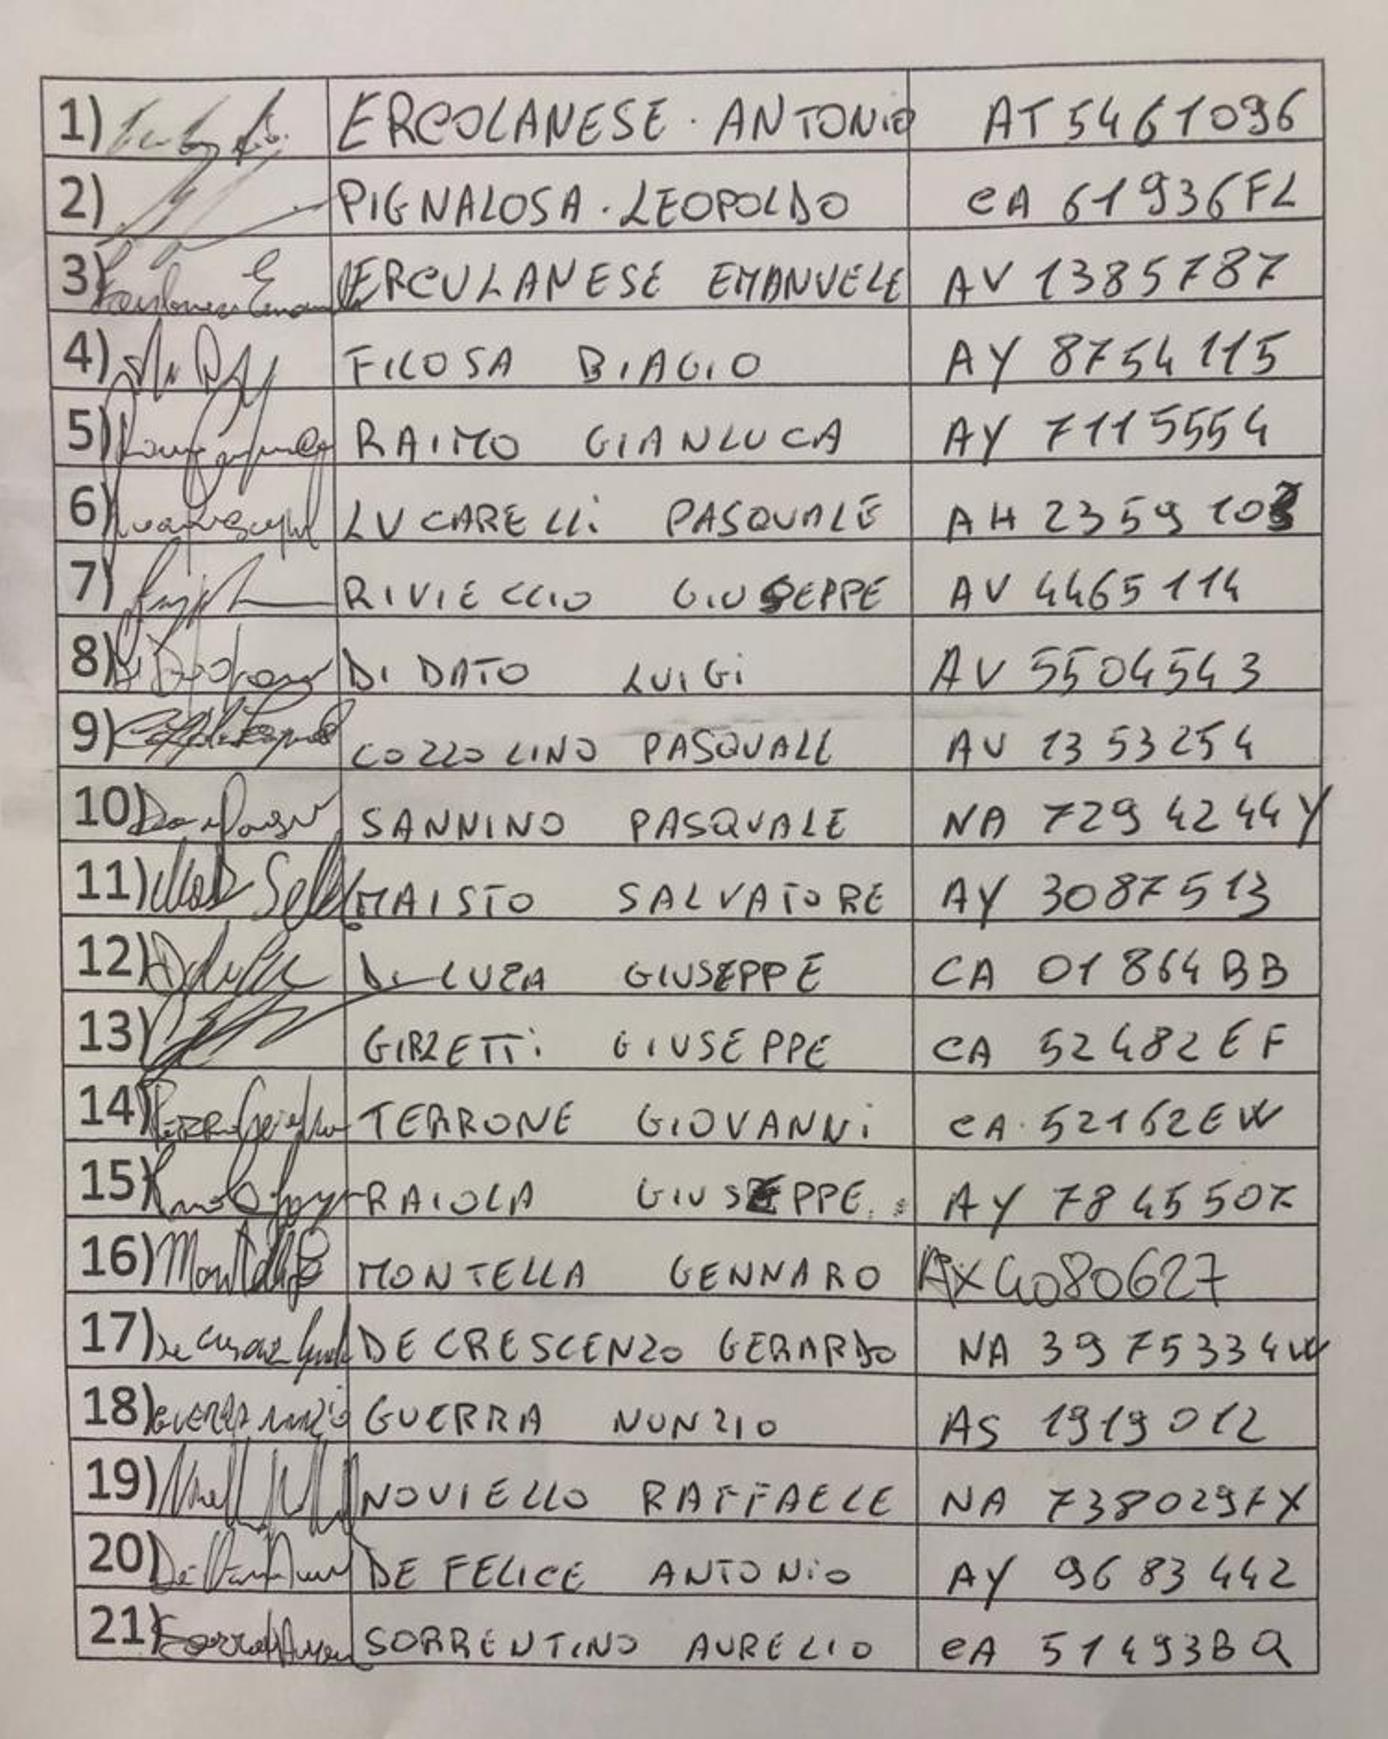 1) ERCOLANESE . ANTONIO AT 5461096
2) PIGNALOSA . LEOPOLDO CA 61936FL
3) ERCULANESE EMANUELE AV 1385787
4) FILOSA BIAGIO AY 8754115
5) RAIMO GIANLUCA AY 7115554
6) LUCARELLi PASQUALE AH
7) RIVIECCIO GIUSEPPE AV 4465114
8) DI DATO LUIGi AV 5504543
9) COZZOLINO PASQUALE AU 1353254
10) SANNINO PASQUALE NA 7294244Y
11) MAISTO SALVATORE AY 3087513
12) DI LUZA GIUSEPPE CA 01864BB
13) GIUSEPPE CA 52482EF
14) TERRONE GIOVANNi CA 52162EW
15) RAIOLA GIUSEPPE AY 7845507
16) Montella MONTELLA GENNARO AX4080627
17) DE CRESCENZO GERARDO NA 3975334W
18) GUERRA NUNZIO GUERRA NUNZIO AS 1919012
19) NOVIELLO RAFFAELE NA
20) DE FELICE ANTONiO AY 9683442
21) SORRENTINO AURELIO CA 51493BQ